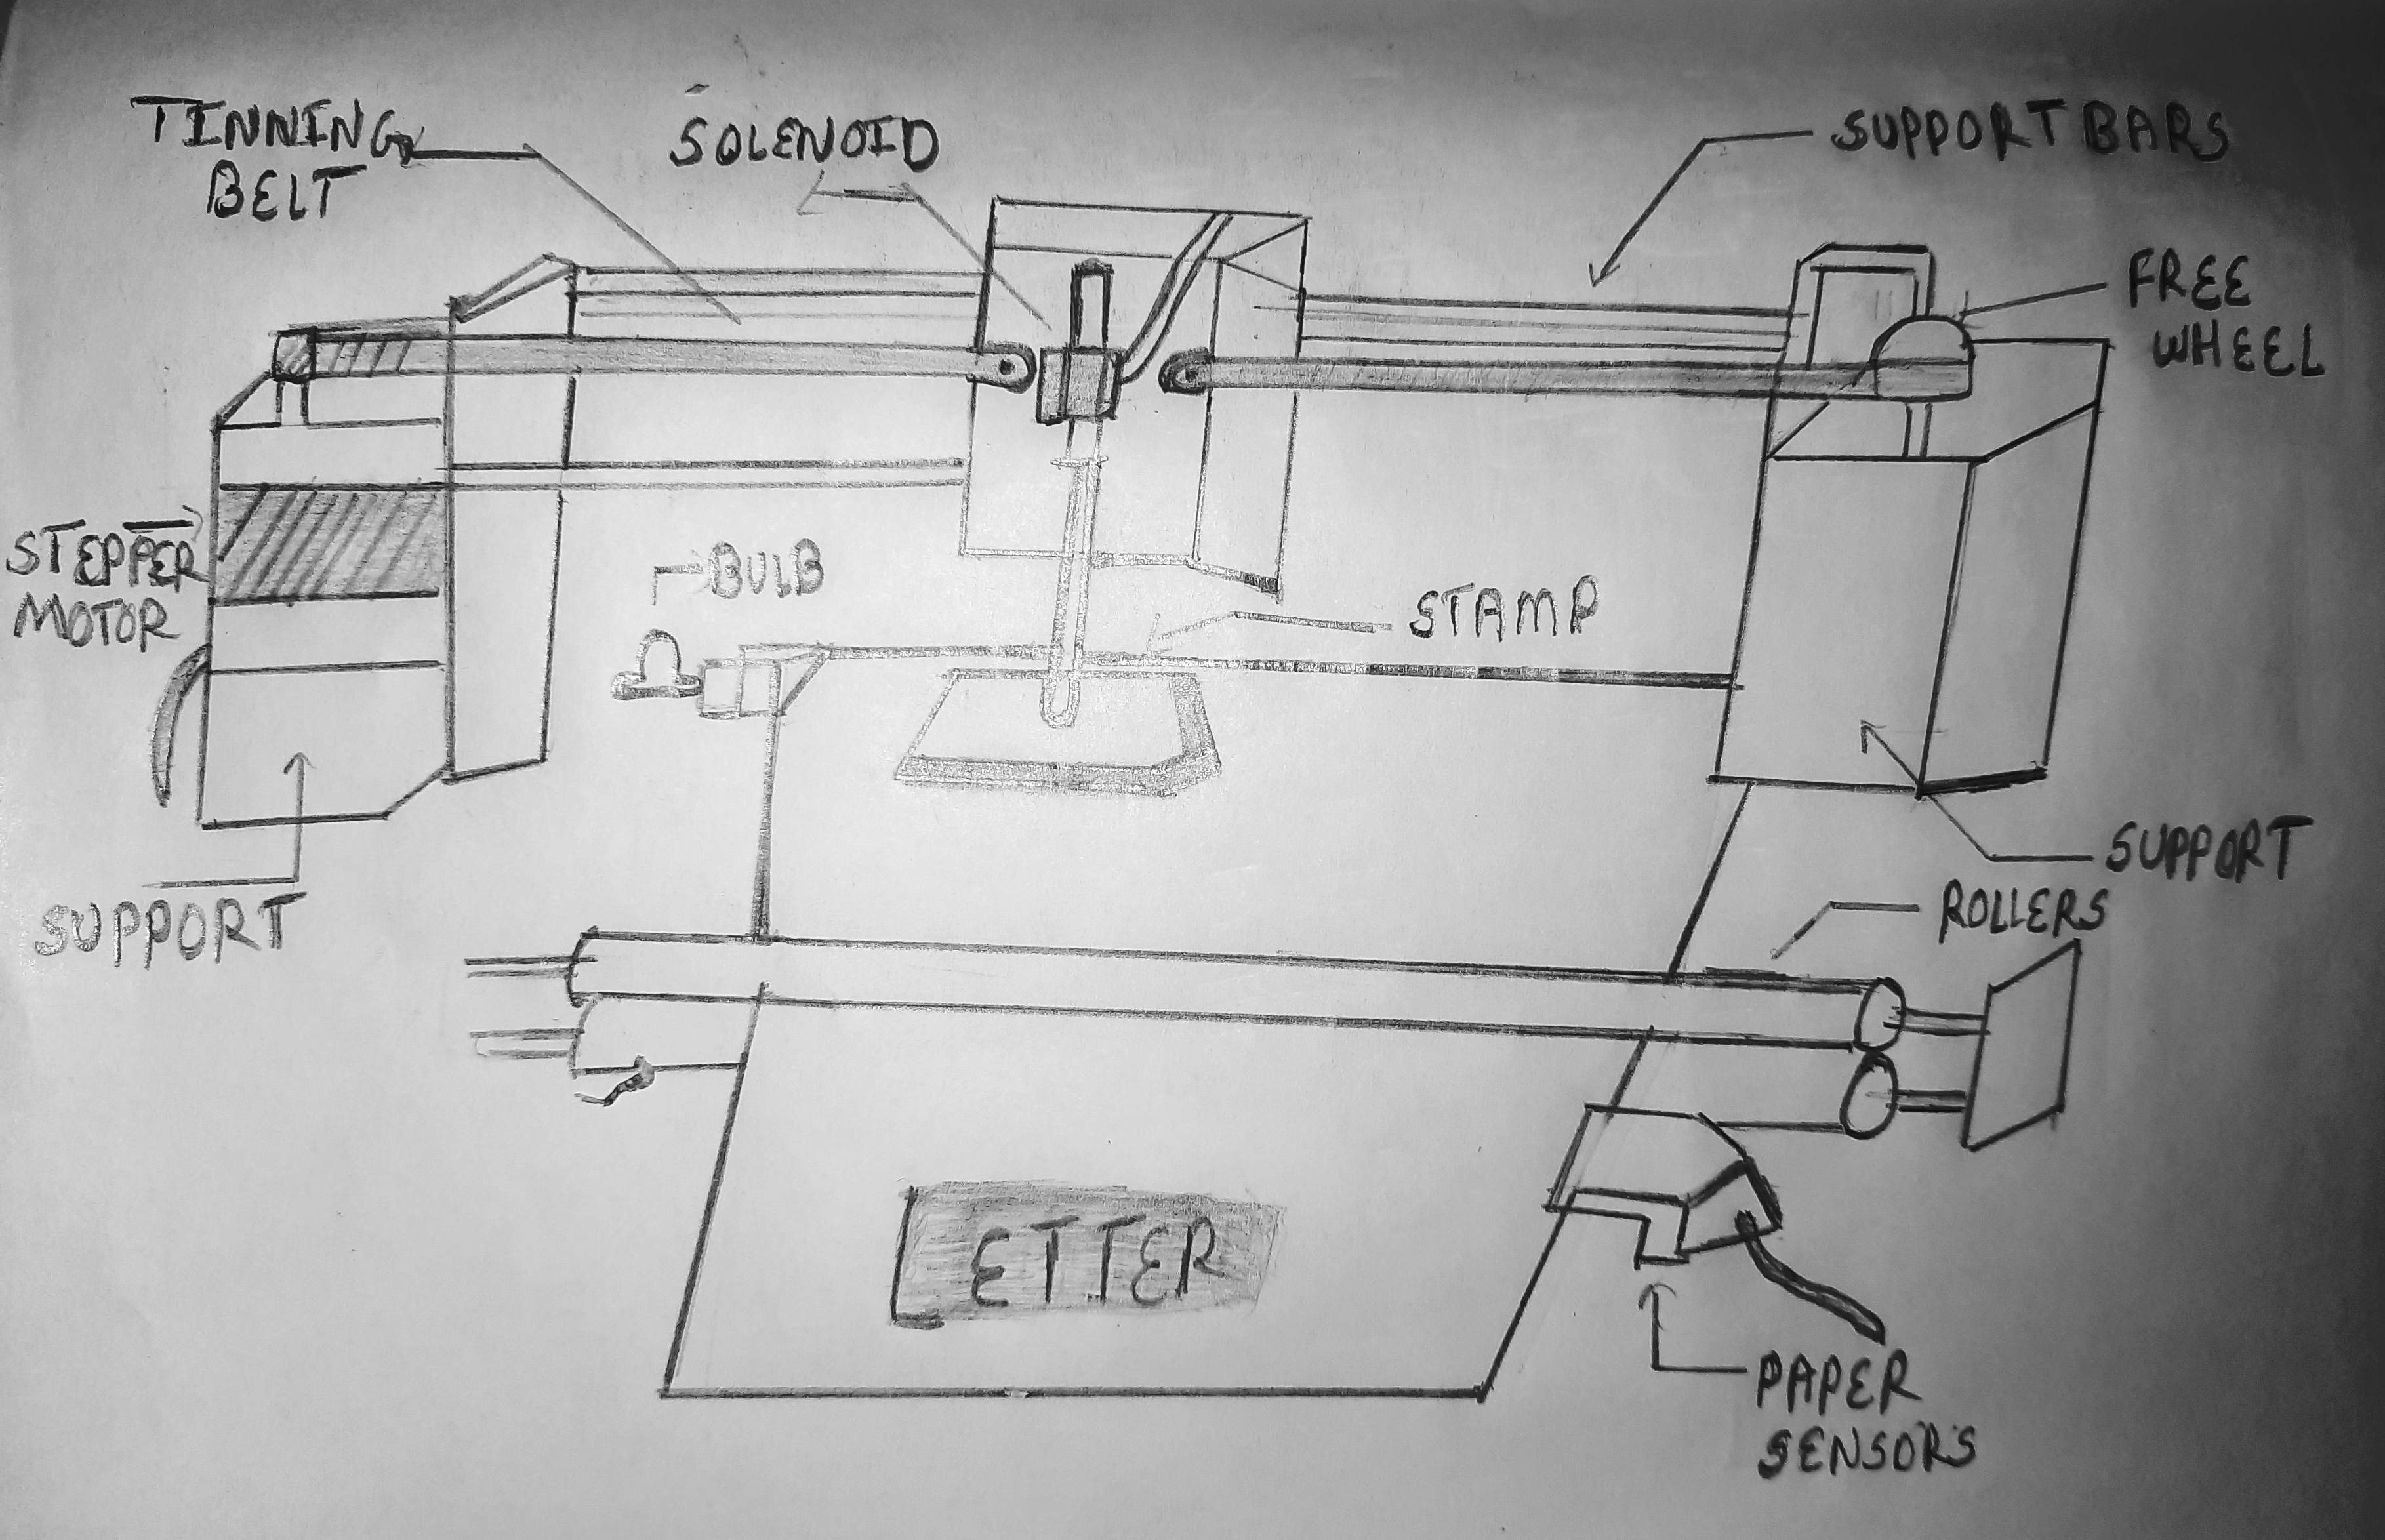 TINNING
BELT
SOLENOID
SUPPORT BARS
FREE
WHEEL
STEPPER
MOTOR
BULB
STAMP
SUPPORT
SUPPORT
ROLLERS
LETTER
PAPER
SENSORS